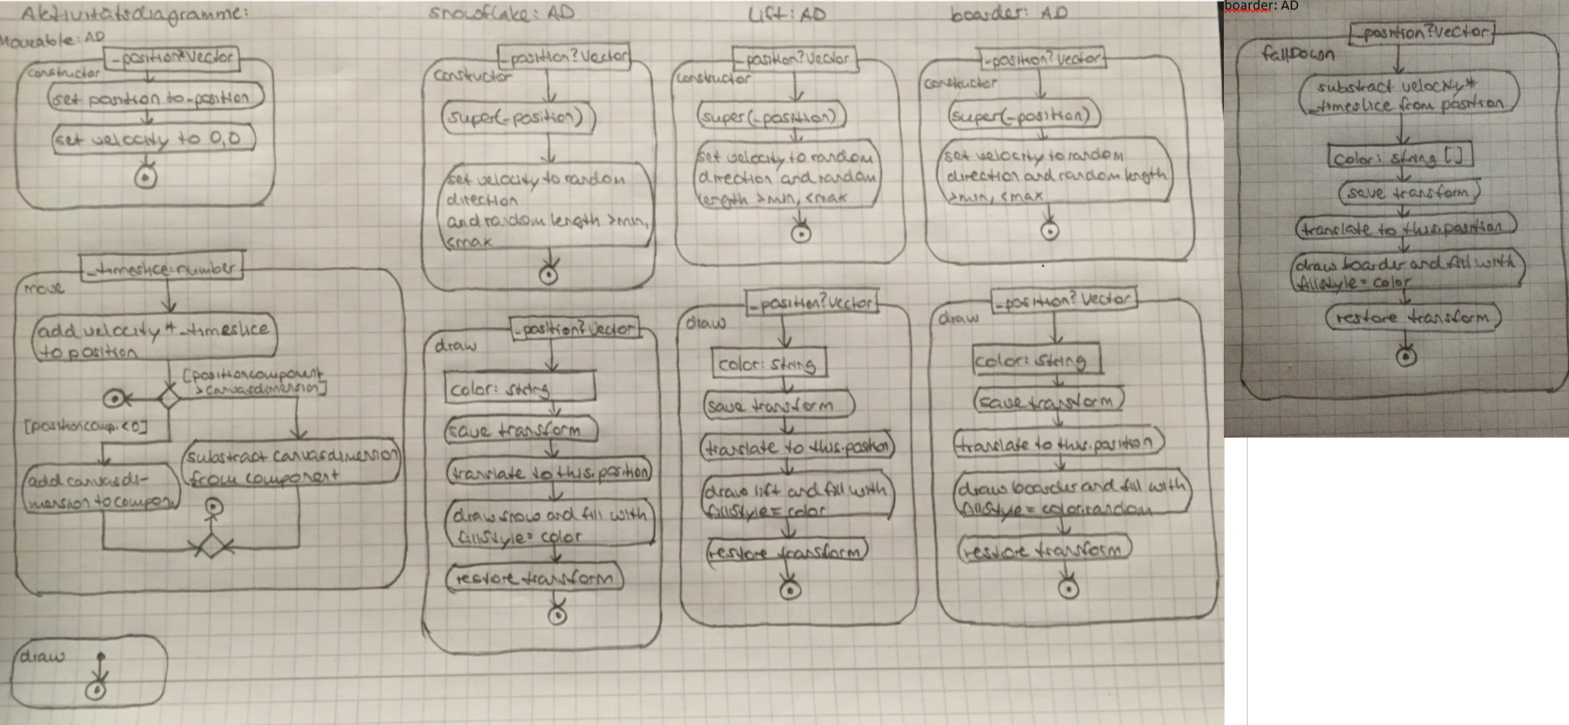 Aktivitätsdiagramme:
Moveable: AD
_position?Vector
constructor
set position to _position
set velocity to 0,0
_timeslice: number
move
add velocity * _timeslice
to position
[positioncomponent
> canvasdimension]
[positioncomp. < 0]
substract canvasdimension
from component
add canvasdi-
mension to compon.
draw
snowflake: AD
_position?Vector
constructor
super(_position)
set velocity to random
direction
and random length >min,
<max
_position?Vector
draw
color: string
save transform
translate to this.position
draw snow and fill with
fillstyle = color
restore transform
Lift: AD
_position?Vector
constructor
super(_position)
set velocity to random
direction and random
length >min, <max
_position?Vector
draw
color: string
save transform
translate to this.position
draw lift and fill with
fillstyle = color
restore transform
boarder: AD
_position?Vector
constructor
super(_position)
set velocity to random
direction and random length
>min, <max
_position?Vector
draw
color: string
save transform
translate to this.position
draw boarder and fill with
fillstyle = color:random
restore transform
boarder: AD
_position?Vector
fallDown
substract velocity *
_timeslice from position
color: string []
save transform
translate to this.position
draw boarder and fill with
fillstyle = color
restore transform